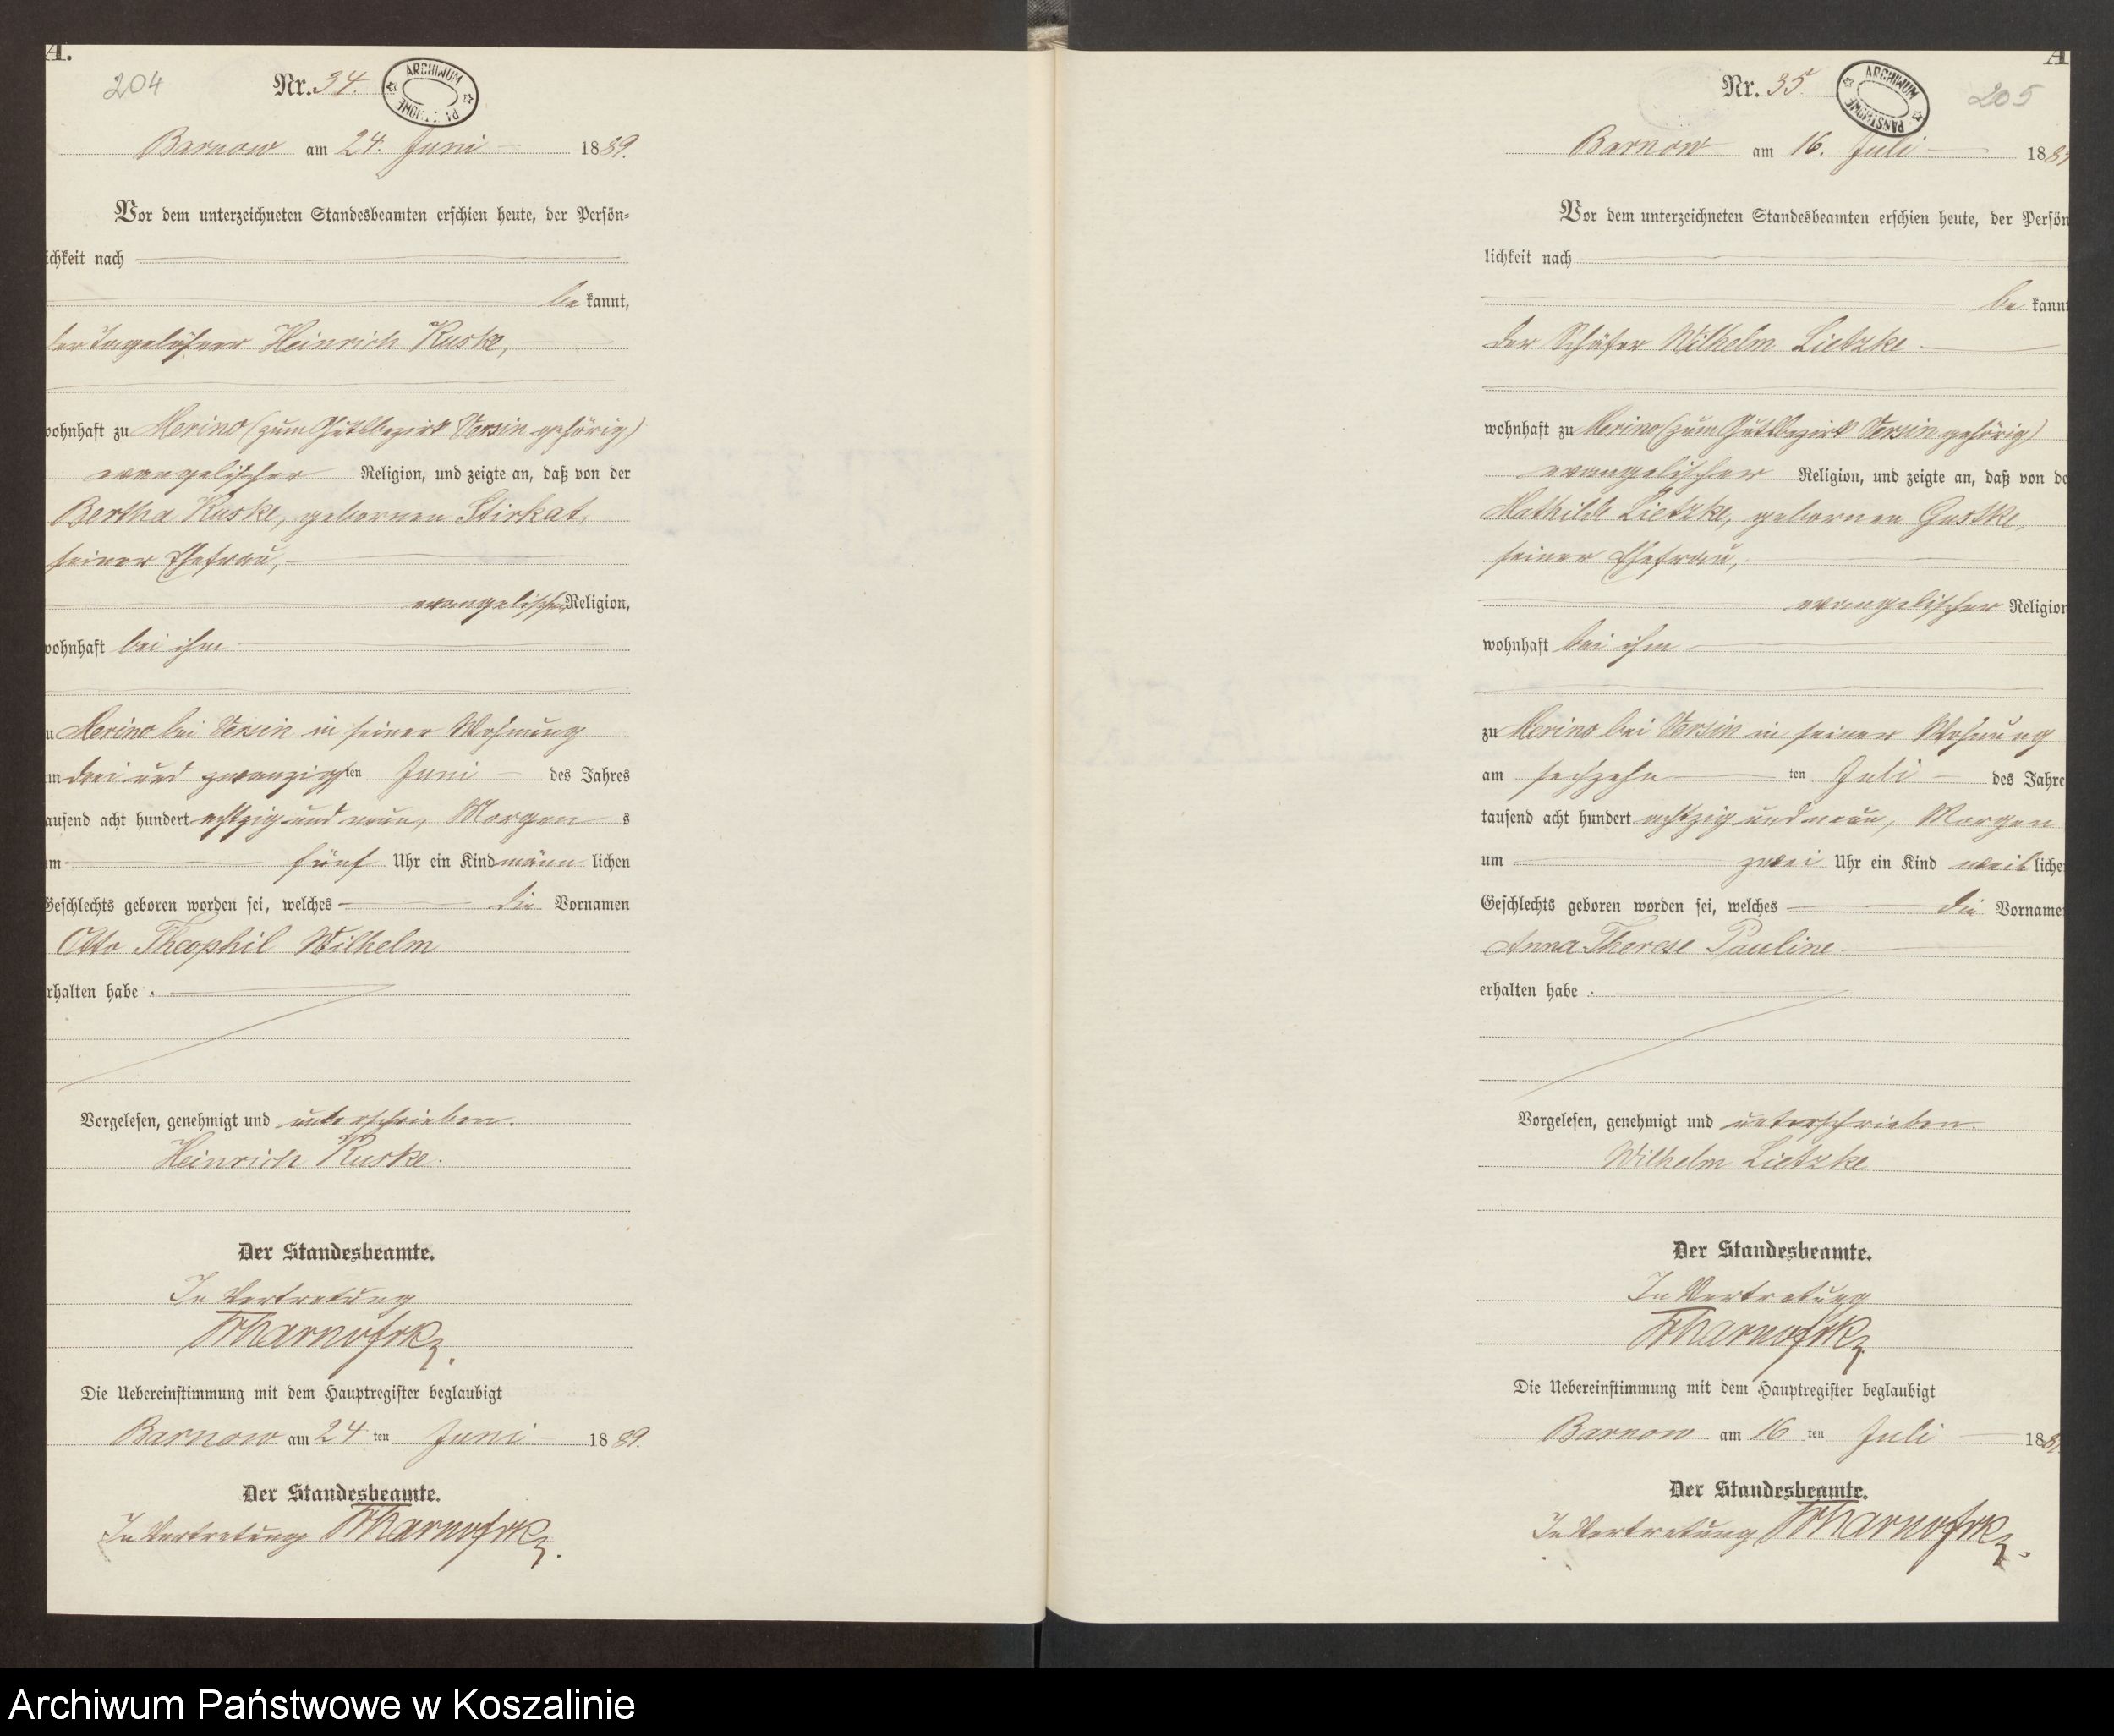 A.
204
Nr. 34.
ARCHIWUM
Barnow am 24. Juni 1889.
Vor dem unterzeichneten Standesbeamten erschien heute, der Persön-
ichkeit nach
be kannt,
der Tagelöhner Heinrich Kuske,
wohnhaft zu Merino (zum Gutsbezirk Versin gehörig)
evangelischer Religion, und zeigte an, daß von der
Bertha Kuske, geborenen Stirkat,
seiner Ehefrau,
evangelischer Religion,
wohnhaft bei ihm
zu Merino bei Versin in seiner Wohnung
am drei und zwanzigsten Juni des Jahres
tausend acht hundert achtzig und neun, Morgens
um fünf Uhr ein Kind männlichen
Geschlechts geboren worden sei, welches die Vornamen
Otto Theophil Wilhelm
erhalten habe.
Vorgelesen, genehmigt und unterschrieben.
Heinrich Kuske.
Der Standesbeamte.
In Vertretung
Die Uebereinstimmung mit dem Hauptregister beglaubigt
Barnow am 24 ten Juni 1889.
Der Standesbeamte.
In Vertretung
A
Nr. 35.
ARCHIWUM PAŃSTWOWE
205
Barnow am 16. Juli 1889
Vor dem unterzeichneten Standesbeamten erschien heute, der Persön
lichkeit nach
be kannt
der Schäfer Wilhelm Lietzke
wohnhaft zu Merino (zum Gutsbezirk Versin gehörig)
evangelischer Religion, und zeigte an, daß von de
Mathilde Lietzke, geborenen Gustke,
seiner Ehefrau,
evangelischer Religion
wohnhaft bei ihm
zu Merino bei Versin in seiner Wohnung
am sechzehn ten Juli des Jahre
tausend acht hundert achtzig und neun, Morgen
um zwei Uhr ein Kind weibliche
Geschlechts geboren worden sei, welches die Vorname
Anna Therese Pauline
erhalten habe.
Vorgelesen, genehmigt und unterschrieben.
Wilhelm Lietzke
Der Standesbeamte.
In Vertretung
Die Uebereinstimmung mit dem Hauptregister beglaubigt
Barnow am 16 ten Juli 188
Der Standesbeamte.
In Vertretung
Archiwum Państwowe w Koszalinie